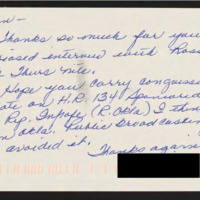 Thanks so much for you
interview with Ross
Thurs nite.
Hope you carry
vote on H.R. 134 Sponsored
Rep. Inhofe (R. Okla) I think
Okla. Public Broadcasting
avoided it.
Thanks again